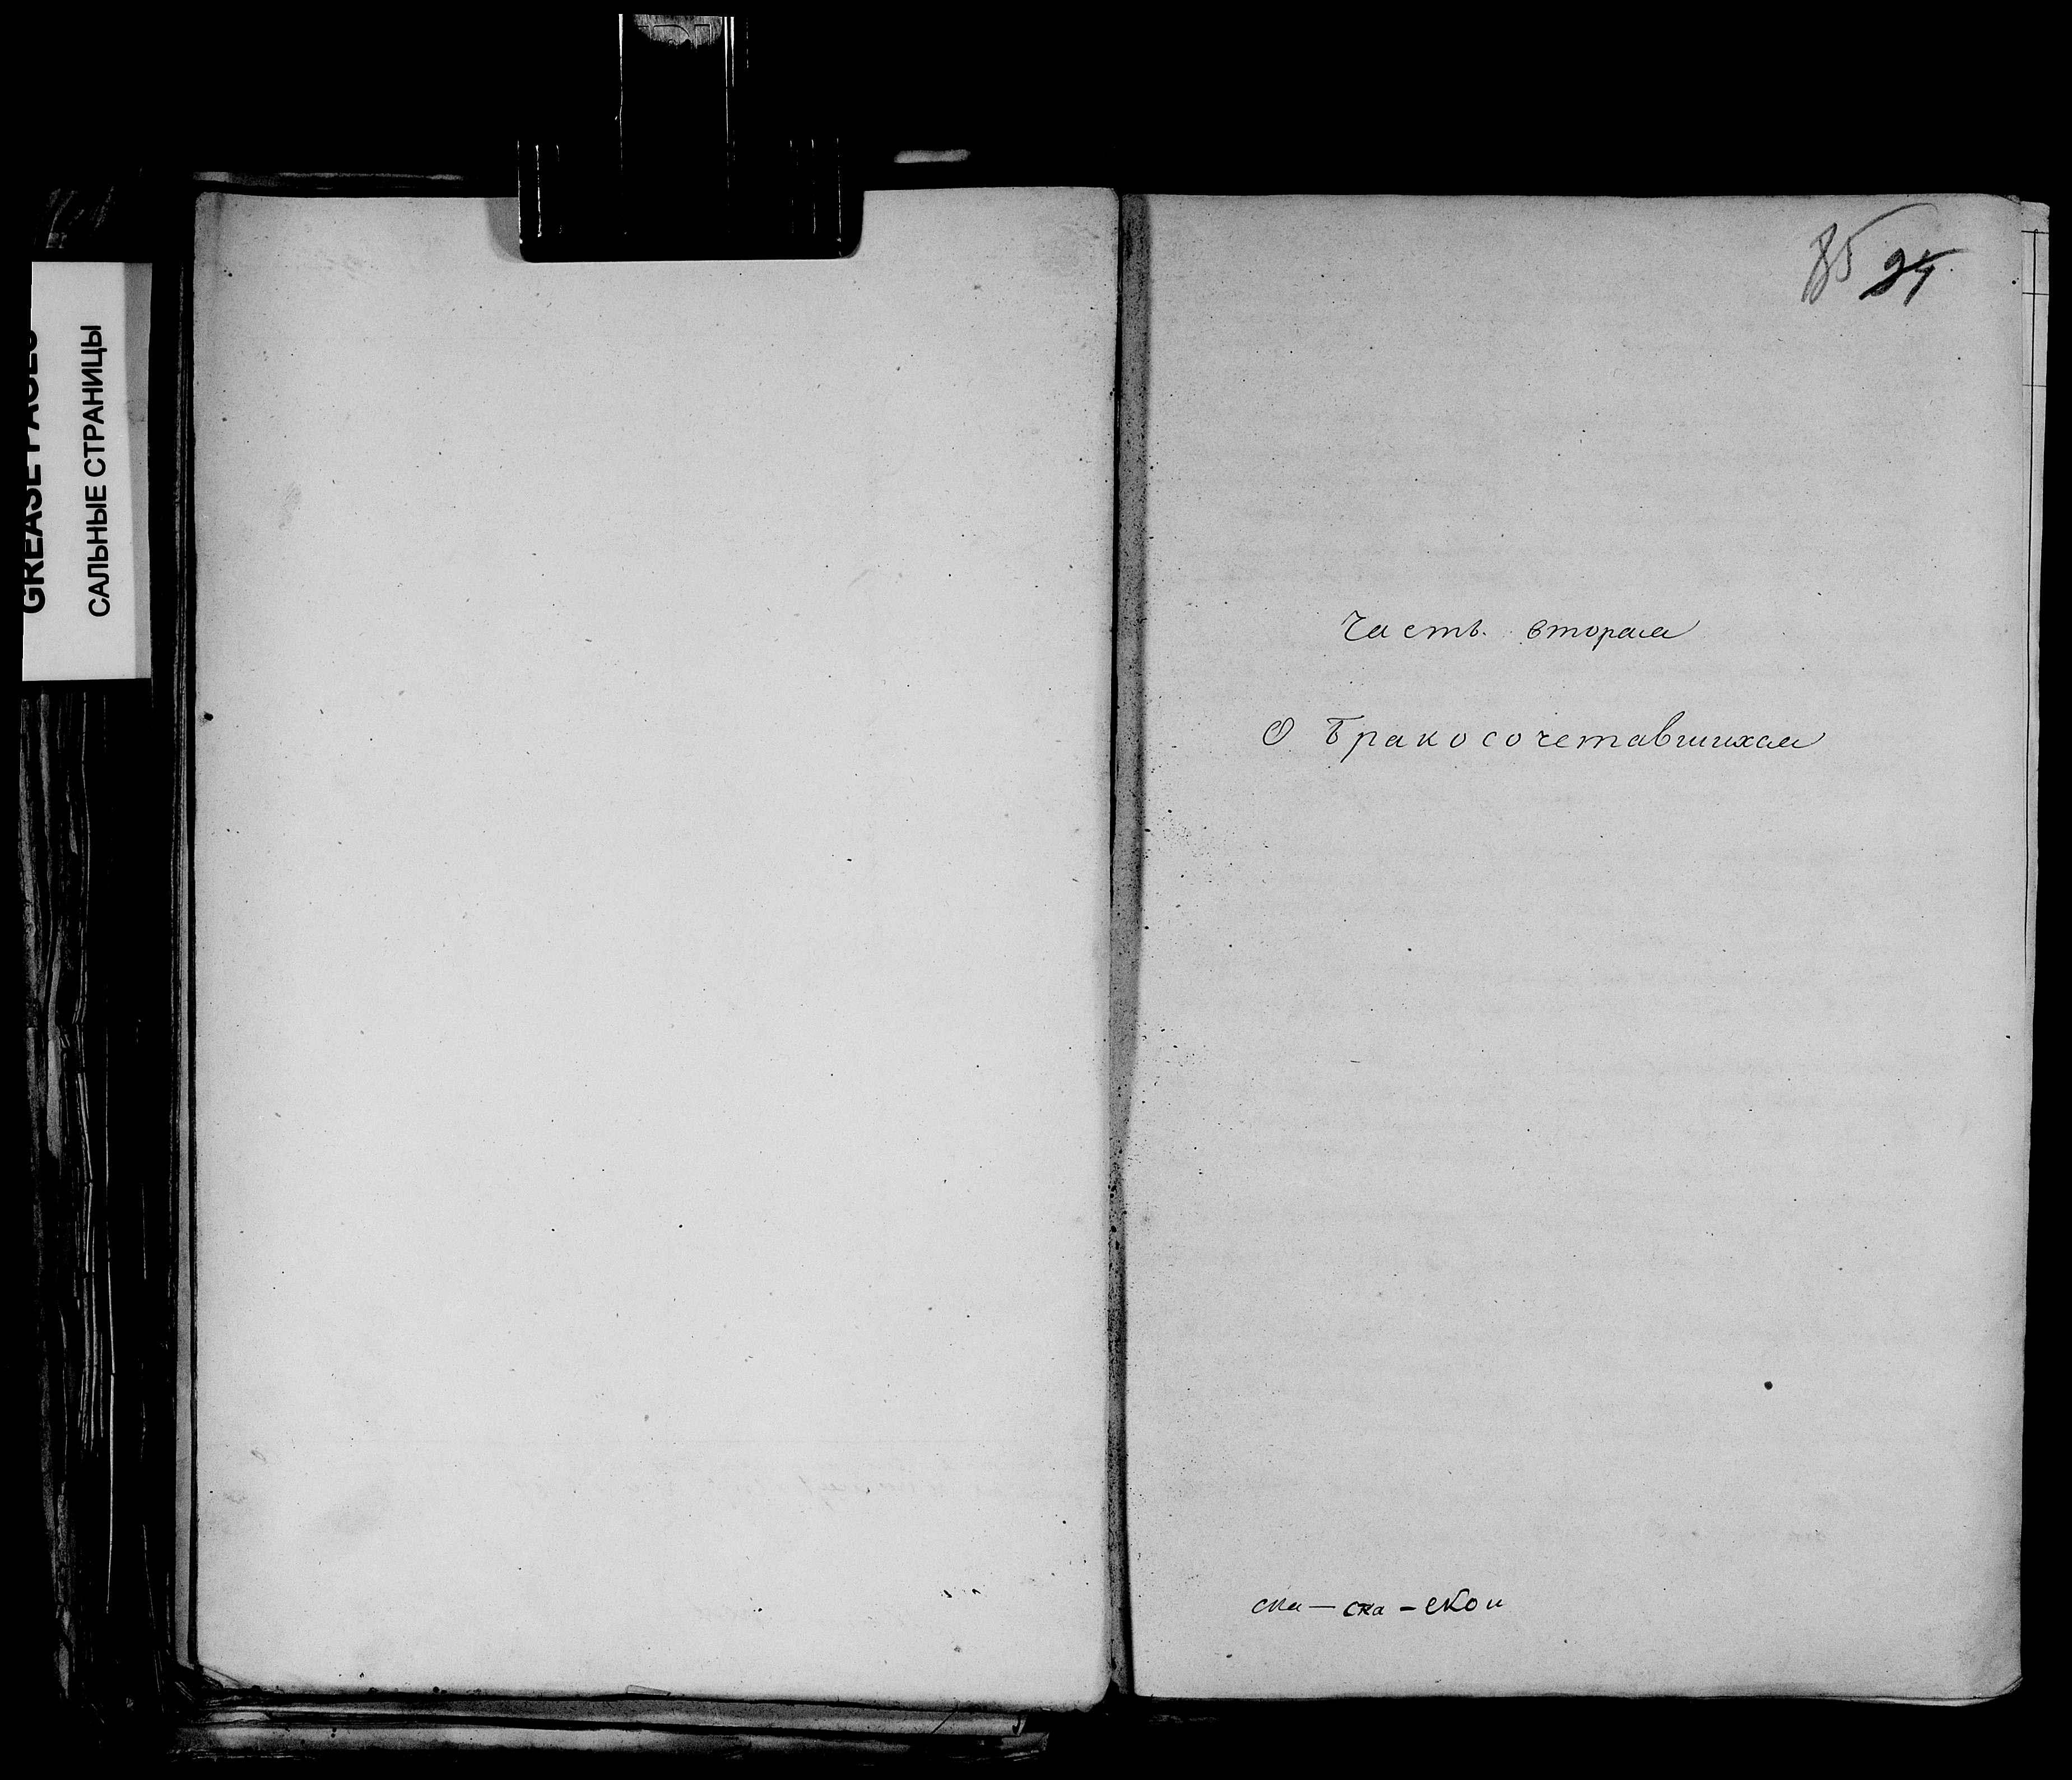 GREASE PAGES
САЛЬНЫЕ СТРАНИЦЫ
85
Часть вторая
О Бракосочетавшихся
ска — ска — ской